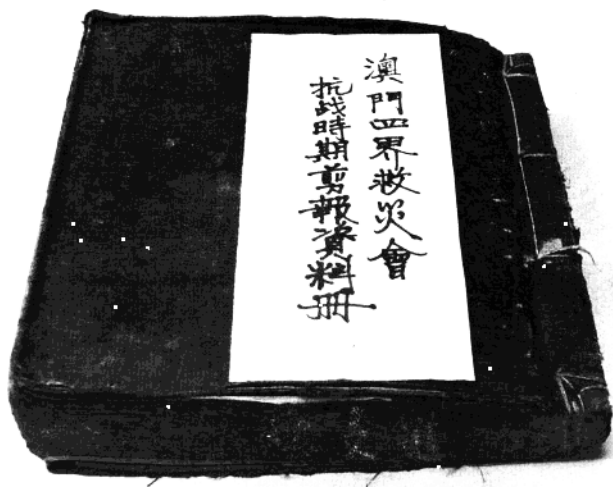 澳門四界救災會
抗战時期剪報資料冊